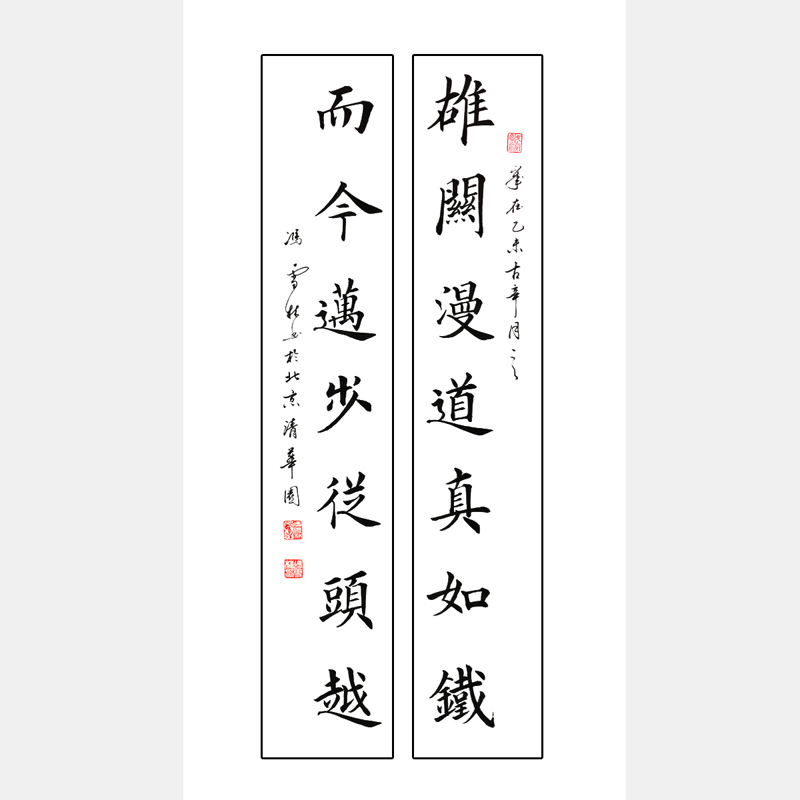 雄關漫道真如鐵
歲在乙未古辛月之
而今邁步從頭越
馮雪林書於北京清華園